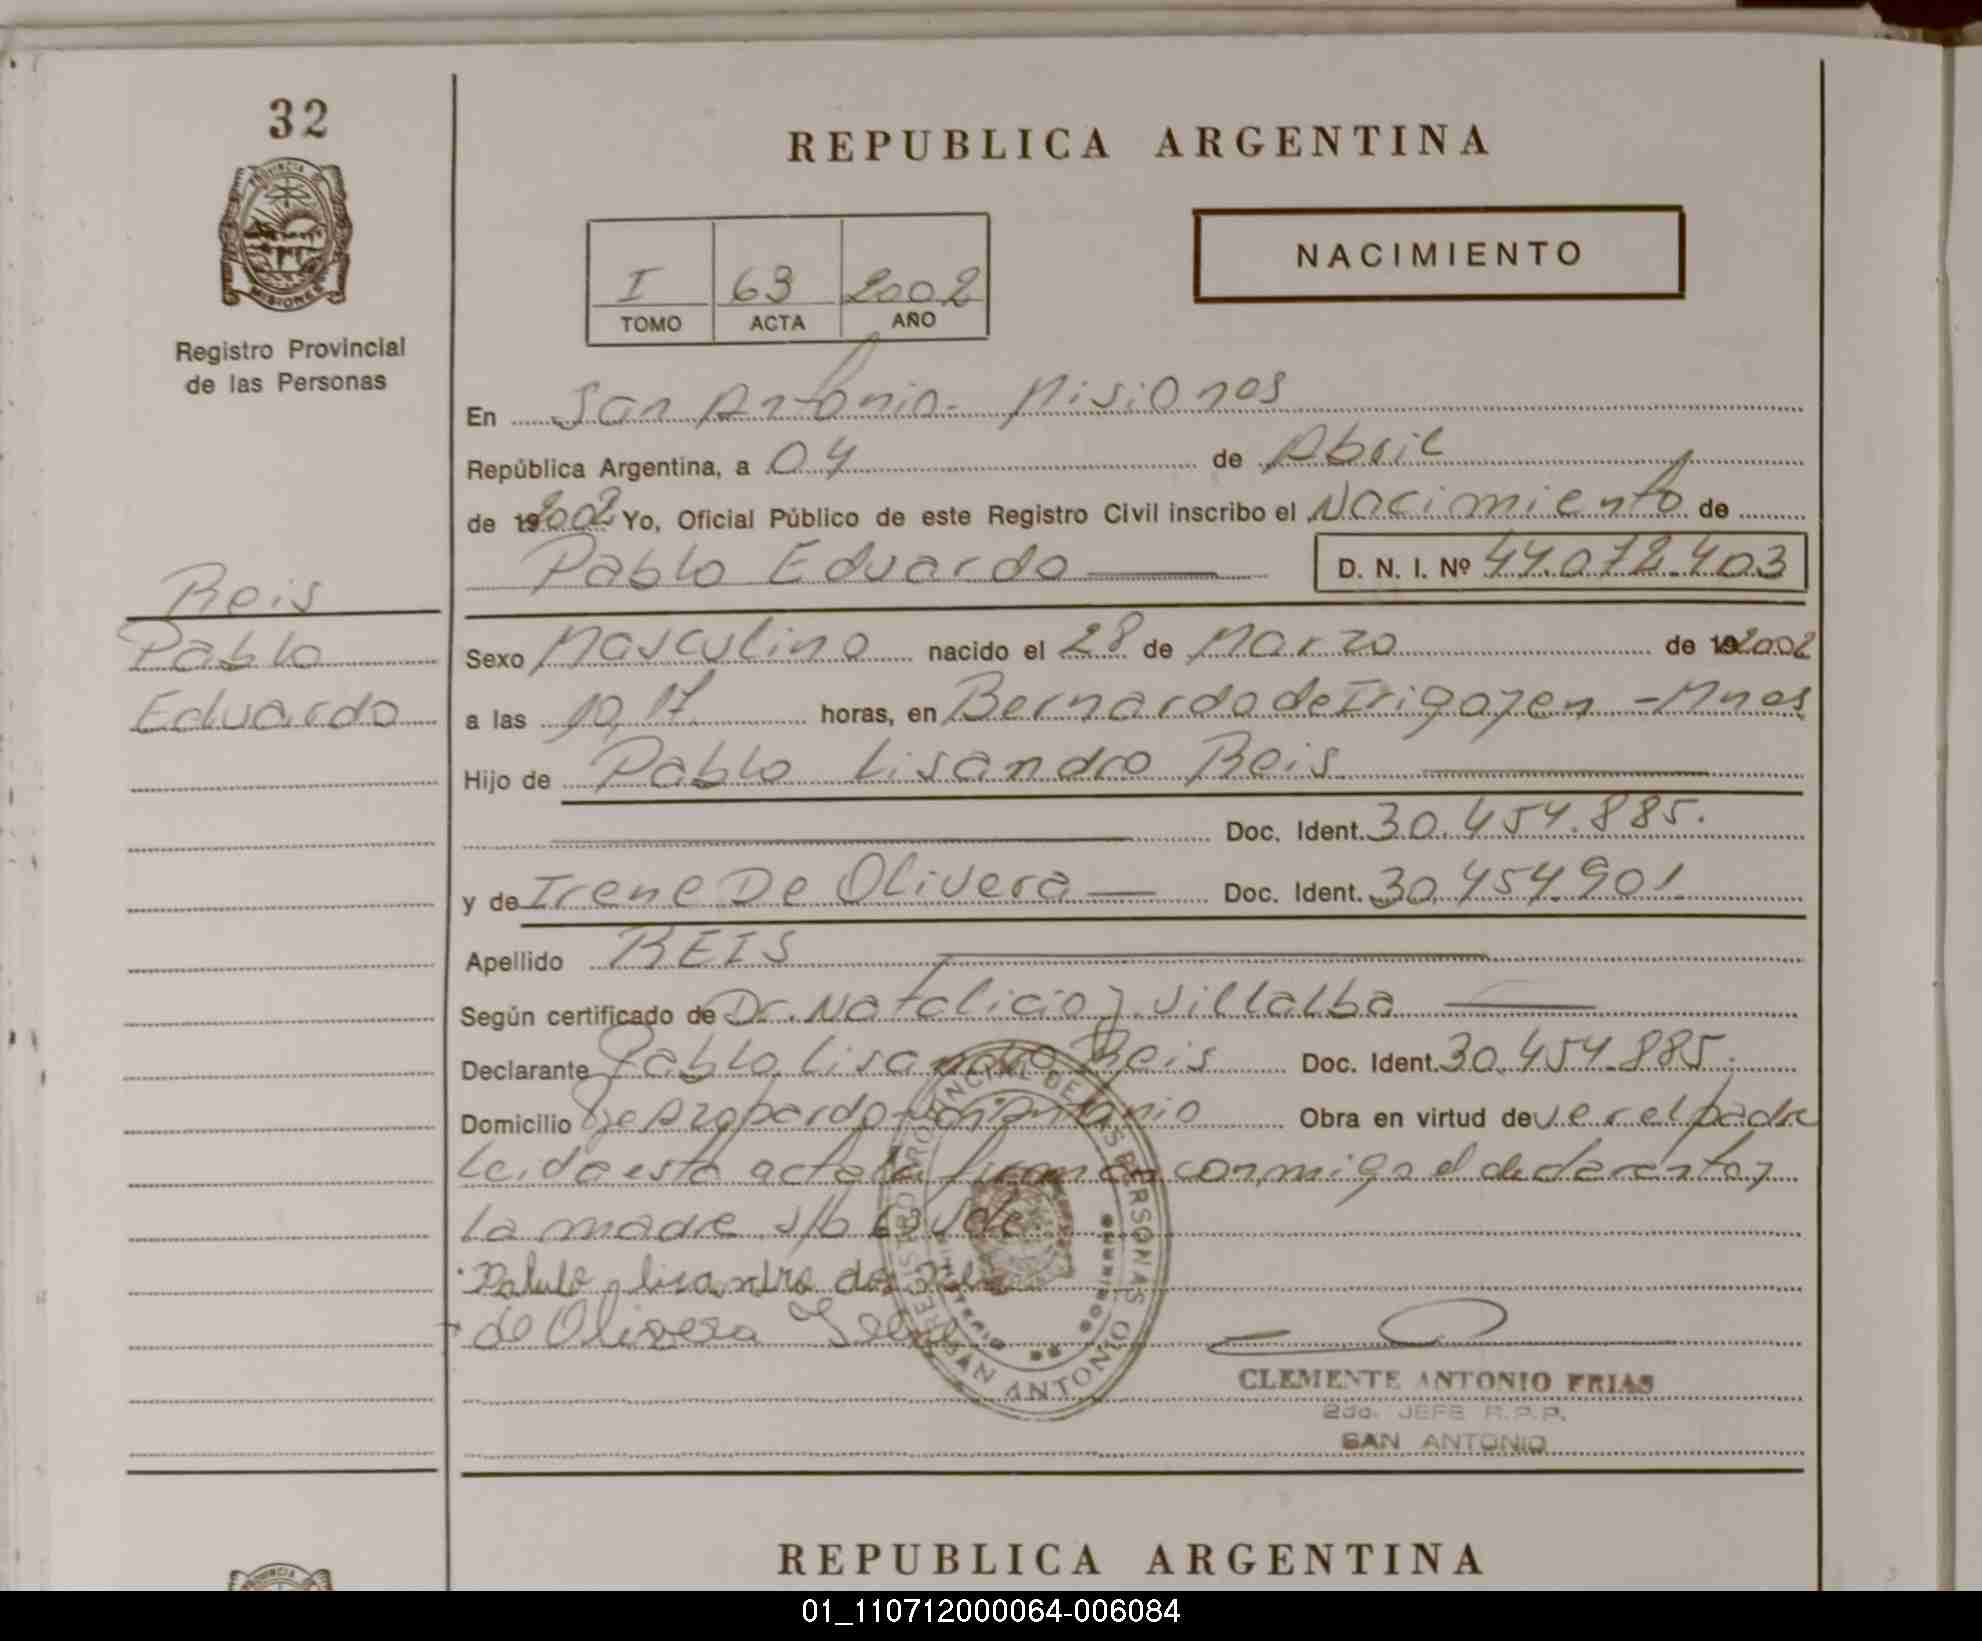 32
PROVINCIA DE
MISIONES
Registro Provincial
de las Personas
Reis
Pablo
Eduardo
REPUBLICA ARGENTINA
I 63 2002
TOMO ACTA AÑO
NACIMIENTO
En San Antonio - Misiones
República Argentina, a 04 de Abril
de 2002 Yo, Oficial Público de este Registro Civil inscribo el Nacimiento de
Pablo Eduardo D. N. I. Nº 44.072.403
Sexo Masculino nacido el 28 de Marzo de 2002
a las 10,17 horas, en Bernardo de Irigoyen - Mnes
Hijo de Pablo Lisandro Reis
Doc. Ident. 30.454.885.
y de Irene De Olivera Doc. Ident. 30.454.901
Apellido REIS
Según certificado de Dr. Natalicio J. Villalba
Declarante Pablo Lisandro Reis Doc. Ident. 30.454.885.
Domicilio San Antonio Obra en virtud de ver el padre
Leida esta acta la firman conmigo el declarante y
la madre
Pablo lisandro dos Reis
de Olivera Irene
REGISTRO PROVINCIAL DE LAS PERSONAS
MINISTERIO DE GOBIERNO
SAN ANTONIO
CLEMENTE ANTONIO FRIAS
2do. JEFE R.P.P.
SAN ANTONIO
REPUBLICA ARGENTINA
PROVINCIA
01_110712000064-006084